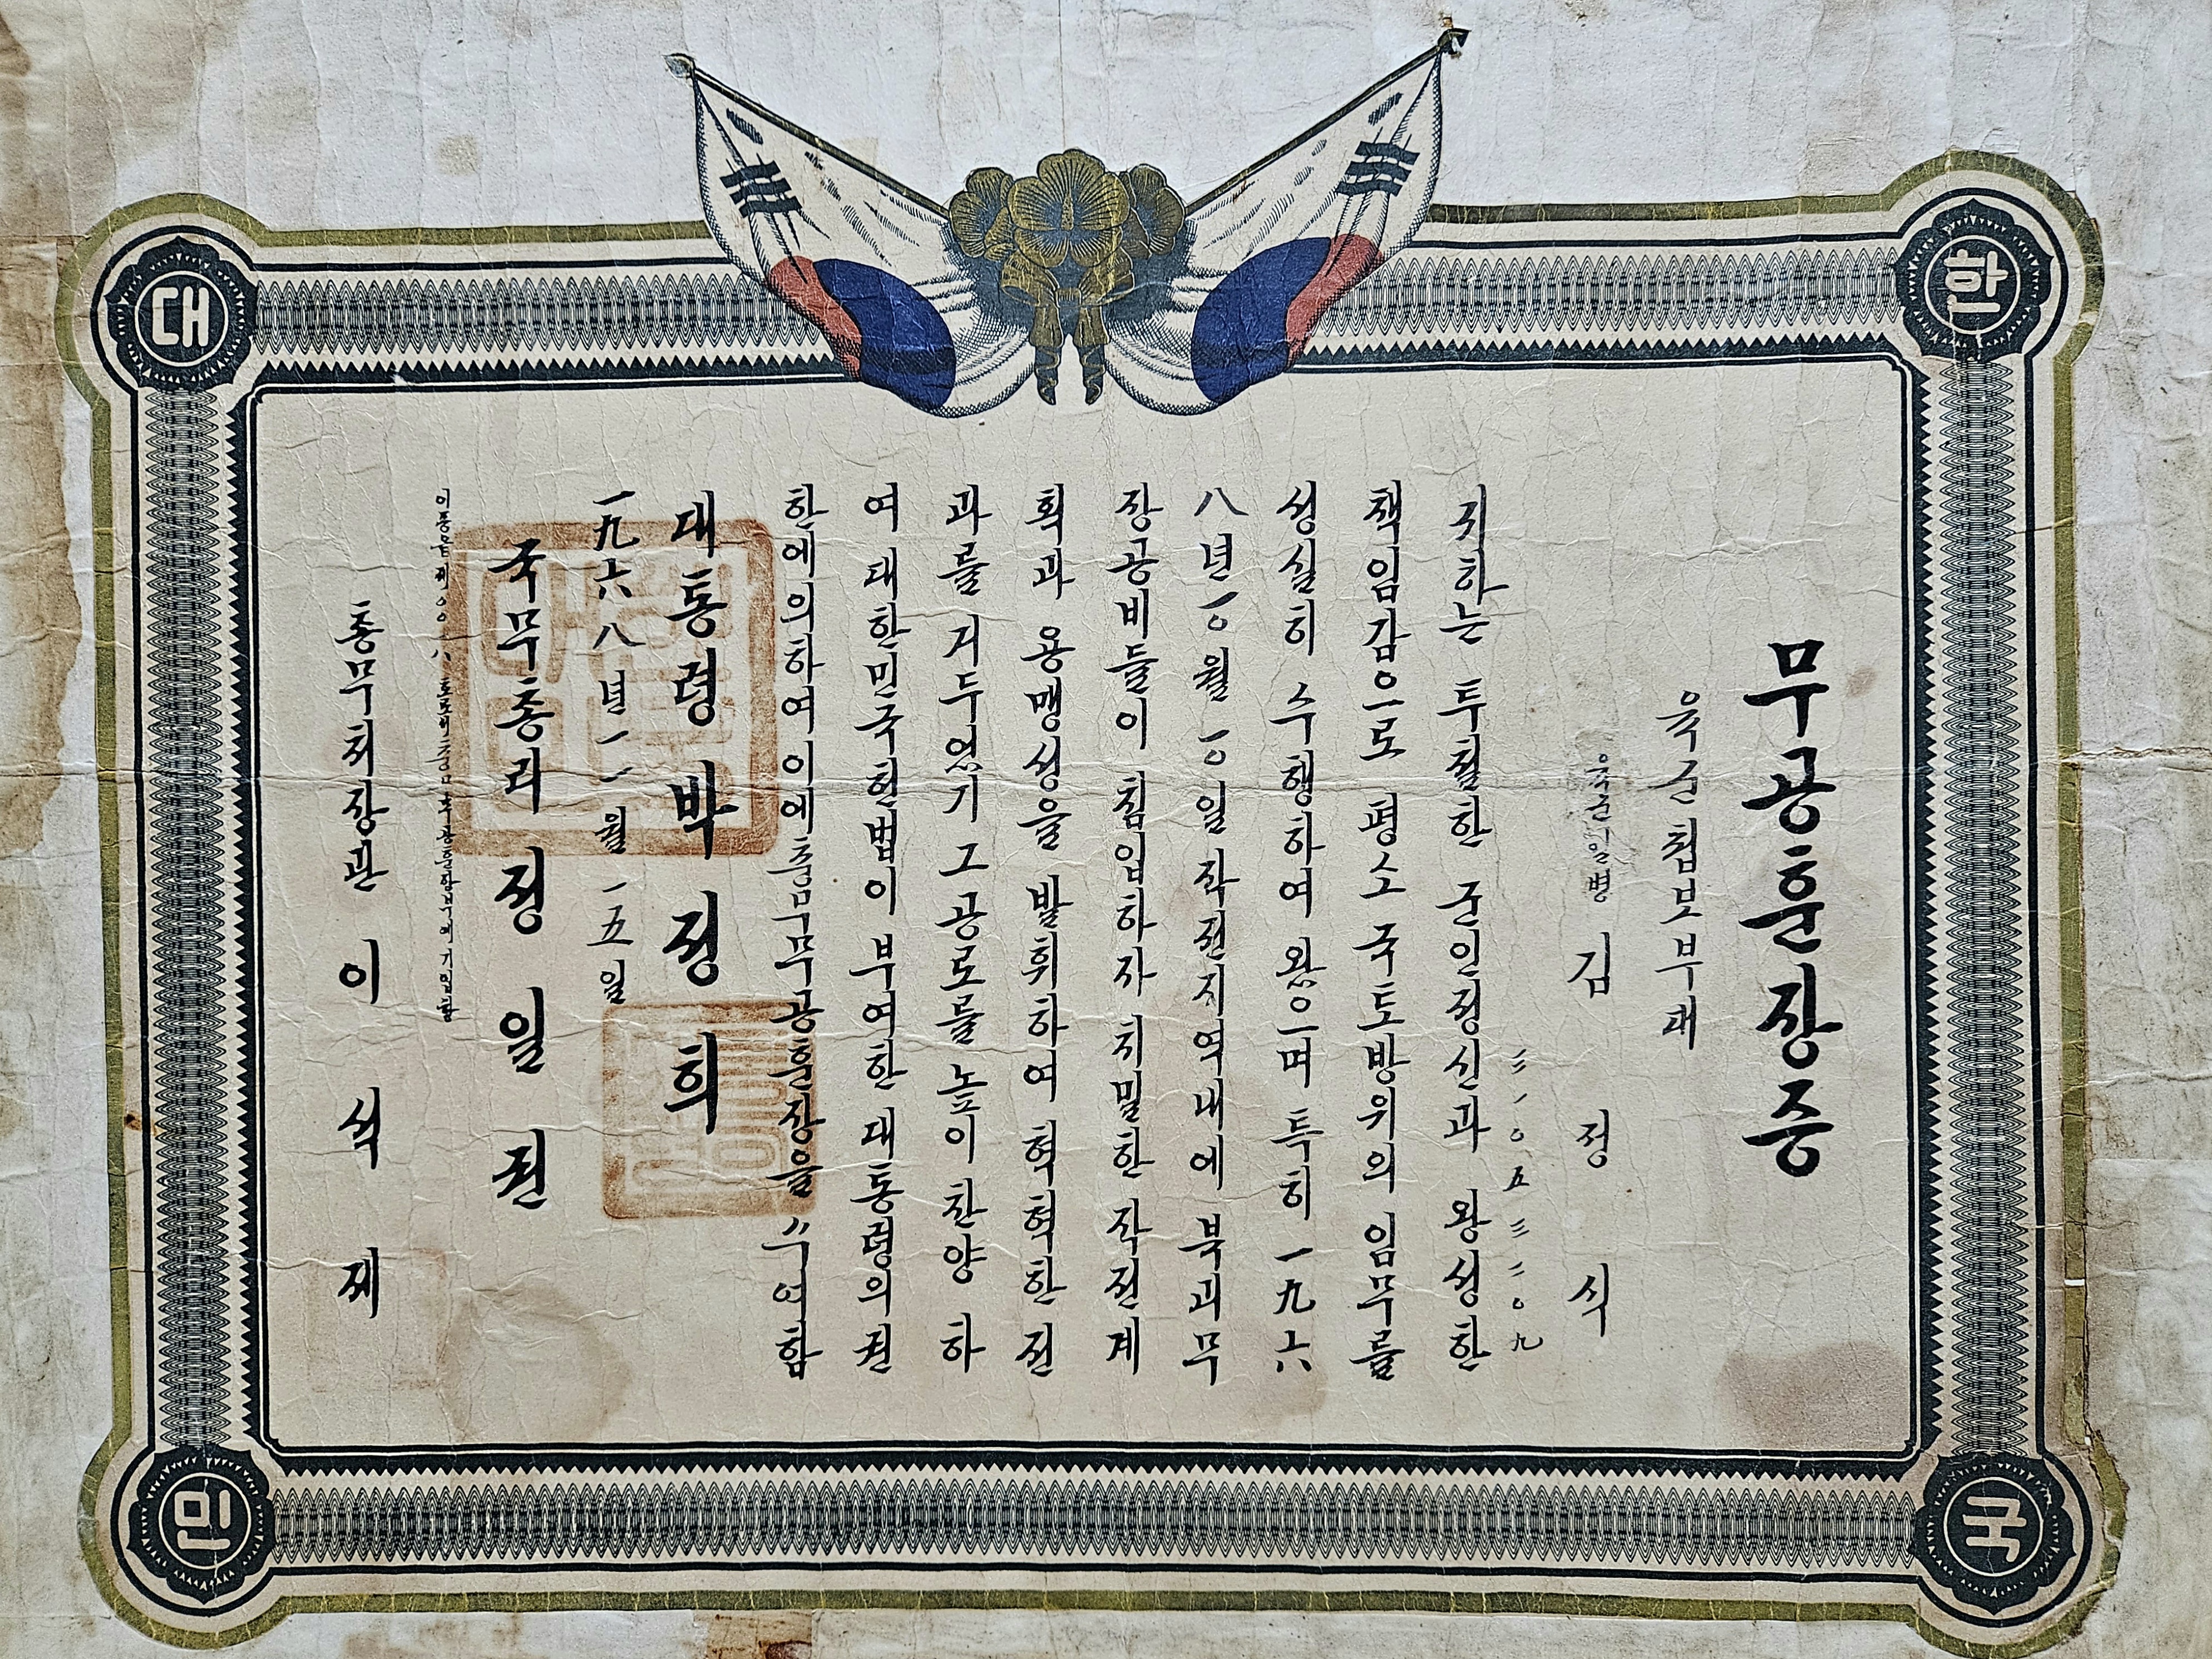 대 한
민 국
무공훈장증
육군첩보부대
육군일병 김 정 식
귀하는 투철한 군인정신과 왕성한
책임감으로 평소 국토방위의 임무를
성실히 수행하여 왔으며 특히 一九六
八년 一〇월 一〇일 작전지역내에 북괴무
장공비들이 침입하자 치밀한 작전계
획과 용맹성을 발휘하여 혁혁한 전
과를 거두었기 그 공로를 높이 찬양 하
여 대한민국헌법이 부여한 대통령의 권
한에의하여 이에 충무무공훈장을 수여함
대통령 박정희
一九六八년 一一월 一五일
국무총리 정일권
총무처장관 이 석 제